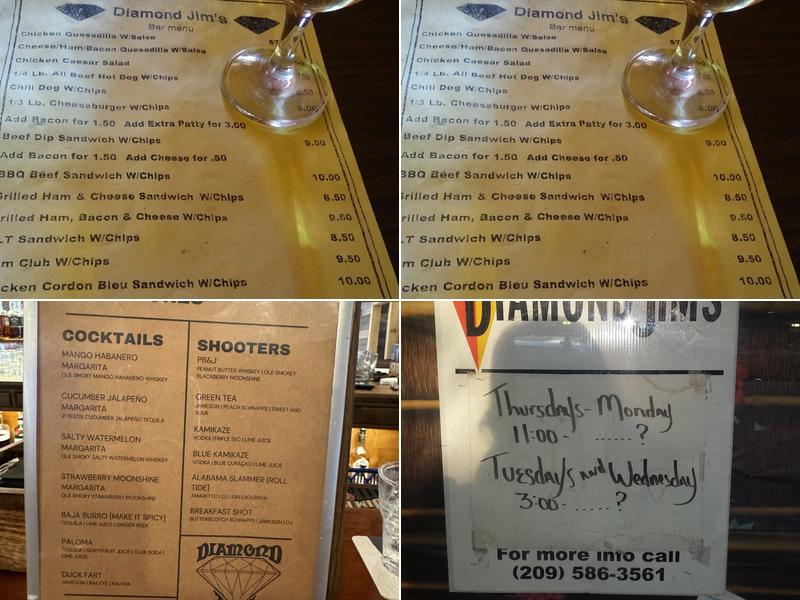 Diamond Jim's
Bar menu
Chicken Quesadilla W/Salsa
Cheese/Ham/Bacon Quesadilla W/Salsa
Chicken Caesar Salad
1/4 Lb. All Beef Hot Dog W/Chips
Chili Dog W/Chips
1/3 Lb. Cheeseburger W/Chips
Add Bacon for 1.50 Add Extra Patty for 3.00
Beef Dip Sandwich W/Chips 9.00
Add Bacon for 1.50 Add Cheese for .50
BBQ Beef Sandwich W/Chips 10.00
Grilled Ham & Cheese Sandwich W/Chips 8.50
rilled Ham, Bacon & Cheese W/Chips 9.50
LT Sandwich W/Chips 8.50
m Club W/Chips 9.50
cken Cordon Bleu Sandwich W/Chips 10.00
Diamond Jim's
Bar menu
Chicken Quesadilla W/Salsa
Cheese/Ham/Bacon Quesadilla W/Salsa
Chicken Caesar Salad
1/4 Lb. All Beef Hot Dog W/Chips
Chili Dog W/Chips
1/3 Lb. Cheeseburger W/Chips
Add Bacon for 1.50 Add Extra Patty for 3.00
Beef Dip Sandwich W/Chips 9.00
Add Bacon for 1.50 Add Cheese for .50
BBQ Beef Sandwich W/Chips 10.00
Grilled Ham & Cheese Sandwich W/Chips 8.50
rilled Ham, Bacon & Cheese W/Chips 9.50
LT Sandwich W/Chips 8.50
m Club W/Chips 9.50
cken Cordon Bleu Sandwich W/Chips 10.00
COCKTAILS
MANGO HABANERO
MARGARITA
OLE SMOKY MANGO HABANERO WHISKEY
CUCUMBER JALAPEÑO
MARGARITA
21 SEEDS CUCUMBER JALAPEÑO TEQUILA
SALTY WATERMELON
MARGARITA
OLE SMOKY SALTY WATERMELON WHISKEY
STRAWBERRY MOONSHINE
MARGARITA
OLE SMOKY STRAWBERRY MOONSHINE
BAJA BURRO [MAKE IT SPICY]
TEQUILA | LIME JUICE | GINGER BEER
PALOMA
TEQUILA | GRAPEFRUIT JUICE | CLUB SODA |
LIME JUICE
DUCK FART
JAMESON | BAILEYS | KALUHA
SHOOTERS
PB&J
PEANUT BUTTER WHISKEY | OLE SMOKEY
BLACKBERRY MOONSHINE
GREEN TEA
JAMESON | PEACH SCHNAPPS | SWEET AND
SOUR
KAMIKAZE
VODKA | TRIPLE SEC | LIME JUICE
BLUE KAMIKAZE
VODKA | BLUE CURAÇAO | LIME JUICE
ALABAMA SLAMMER [ROLL
TIDE]
AMARETTO | OJ | GIN | BOURBON
BREAKFAST SHOT
BUTTERSCOTCH SCHNAPPS | JAMESON | OJ
DIAMOND
DIAMOND JIM'S
Thursdays - Monday
11:00 - ......?
Tuesdays and Wednesday
3:00 - .....?
For more info call
(209) 586-3561